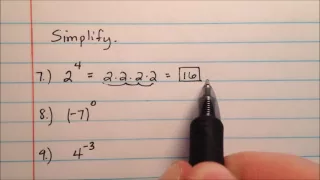 Simplify.
7.) 2⁴ = 2·2·2·2 = 16
8.) (-7)⁰
9.) 4⁻³